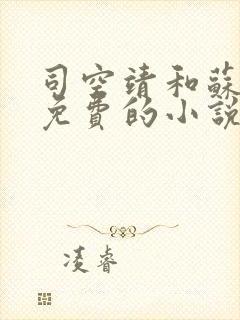 司空靖和蘇
免費的小說
凌睿